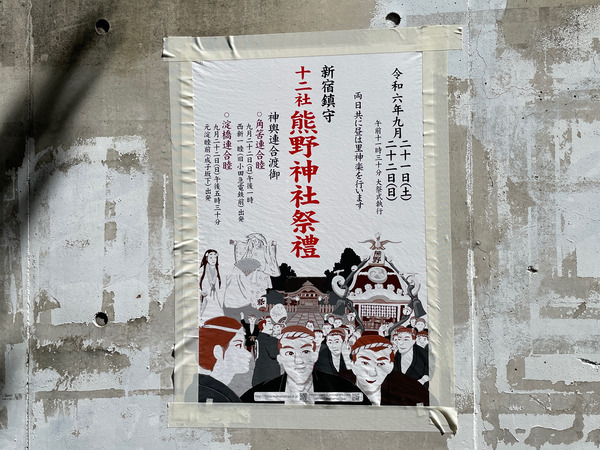 令和六年九月
二十一日(土)
二十二日(日)
午前十一時三十分 大祭式執行
両日共に昼は里神楽を行います
新宿鎮守
十二社 熊野神社祭禮
神輿連合渡御
○角筈連合睦
九月二十二日(日)午後一時
西新一睦(旧小田急電鉄前)出発
○淀橋連合睦
九月二十二日(日)午後五時三十分
元淀睦前(成子坂下)出発